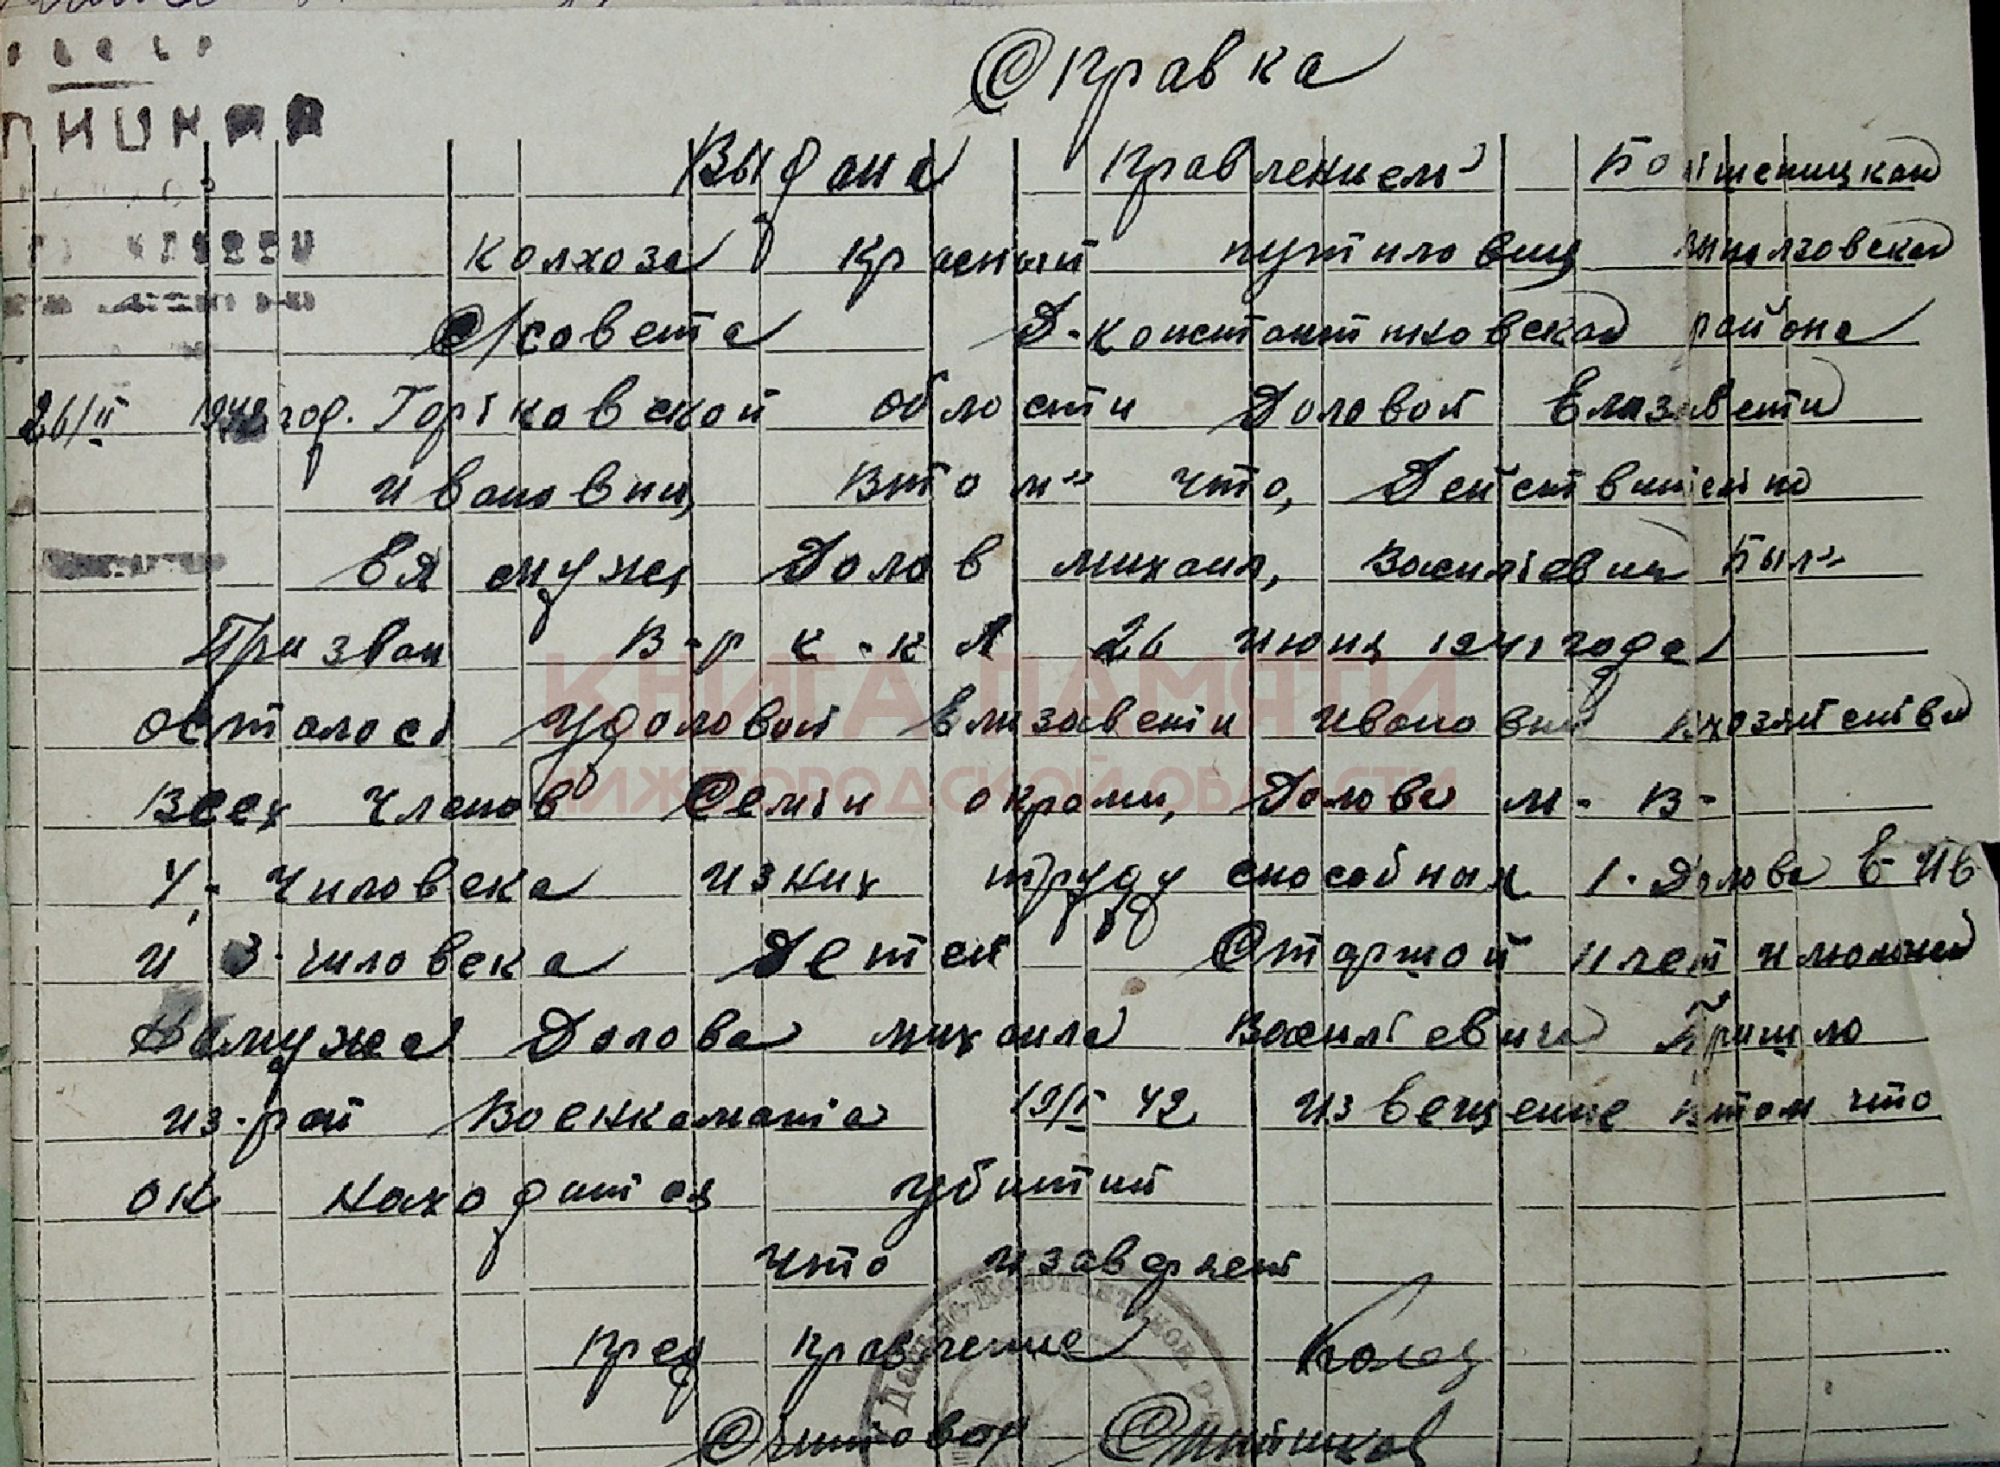 Справка
Выдана правлением
колхоза Красный путиловец
С/совета Д-константиновскова района
26/II 1942 год. Горіковской області Долов​ой Елизавети
ивановни, втом что, Действитеіно
Ея муж, Долов михаил, Василіевич Был
Призван В-р к-к А 26 июня 1941 года
осталосі удоловой Елизавети ивановни вхозяйстве
Всех членов Семіи окроми, Долова м-в-
4,- чиловека изних трудуспособных 1. Долова Е-ИВ
и 3-чиловека Детей Старшой 11 лет
Намужа Долова михаила Василіевича Пришло
из-рай Военкомата 19/II 42 извещение втом что
он находится убитий
что изаверяет
Пред правление
Считовод
КНИГА ПАМЯТИ
НИЖЕГОРОДСКОЙ ОБЛАСТИ